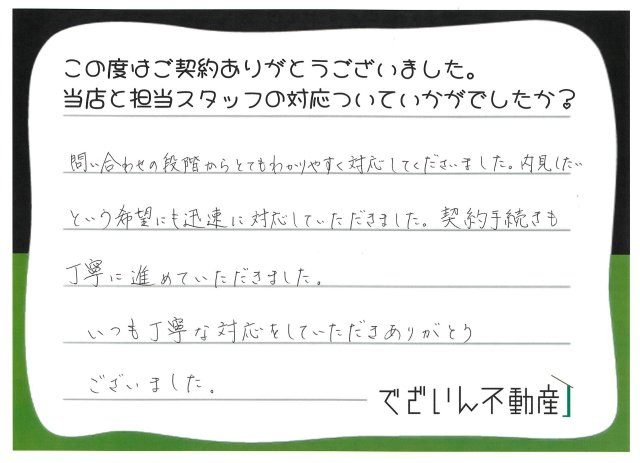 この度はご契約ありがとうございました。
当店と担当スタッフの対応ついていかがでしたか？
問い合わせの段階からとてもわかりやすく対応してくださいました。内見したい
という希望にも迅速に対応していただきました。契約手続きも
丁寧に進めていただきました。
いつも丁寧な対応をしていただきありがとう
ございました。
でざいん不動産